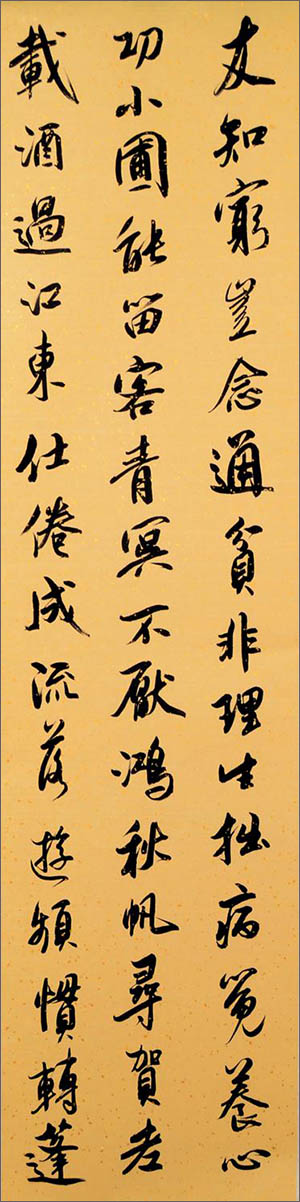 友知窮豈念通貧非理生拙病覓養心
功小圃能留客青冥不厭鴻秋帆尋賀老
載酒過江東仕倦成流落遊頻慣轉蓬